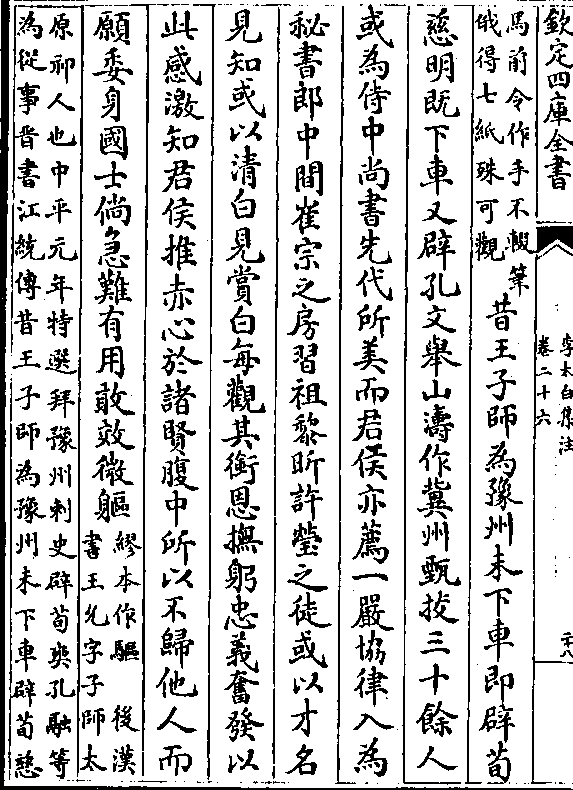 欽定四庫全書
李太白集注
卷二十六
二十八
馬前令作手不輟筆
俄得七紙殊可觀
昔王子師為豫州未下車即辟荀
慈明既下車又辟孔文舉山濤作冀州甄拔三十餘人
或為侍中尚書先代所美而君侯亦薦一嚴協律入為
秘書郎中間崔宗之房習祖黎昕許瑩之徒或以才名
見知或以清白見賞白每觀其銜恩撫躬忠義奮發以
此感激知君侯推赤心於諸賢腹中所以不歸他人而
願委身國士倘急難有用敢效微軀
繆本作驅 後漢
書王允字子師太
原祁人也中平元年特選拜豫州刺史辟荀爽孔融等
為從事晉書江統傳昔王子師為豫州未下車辟荀慈